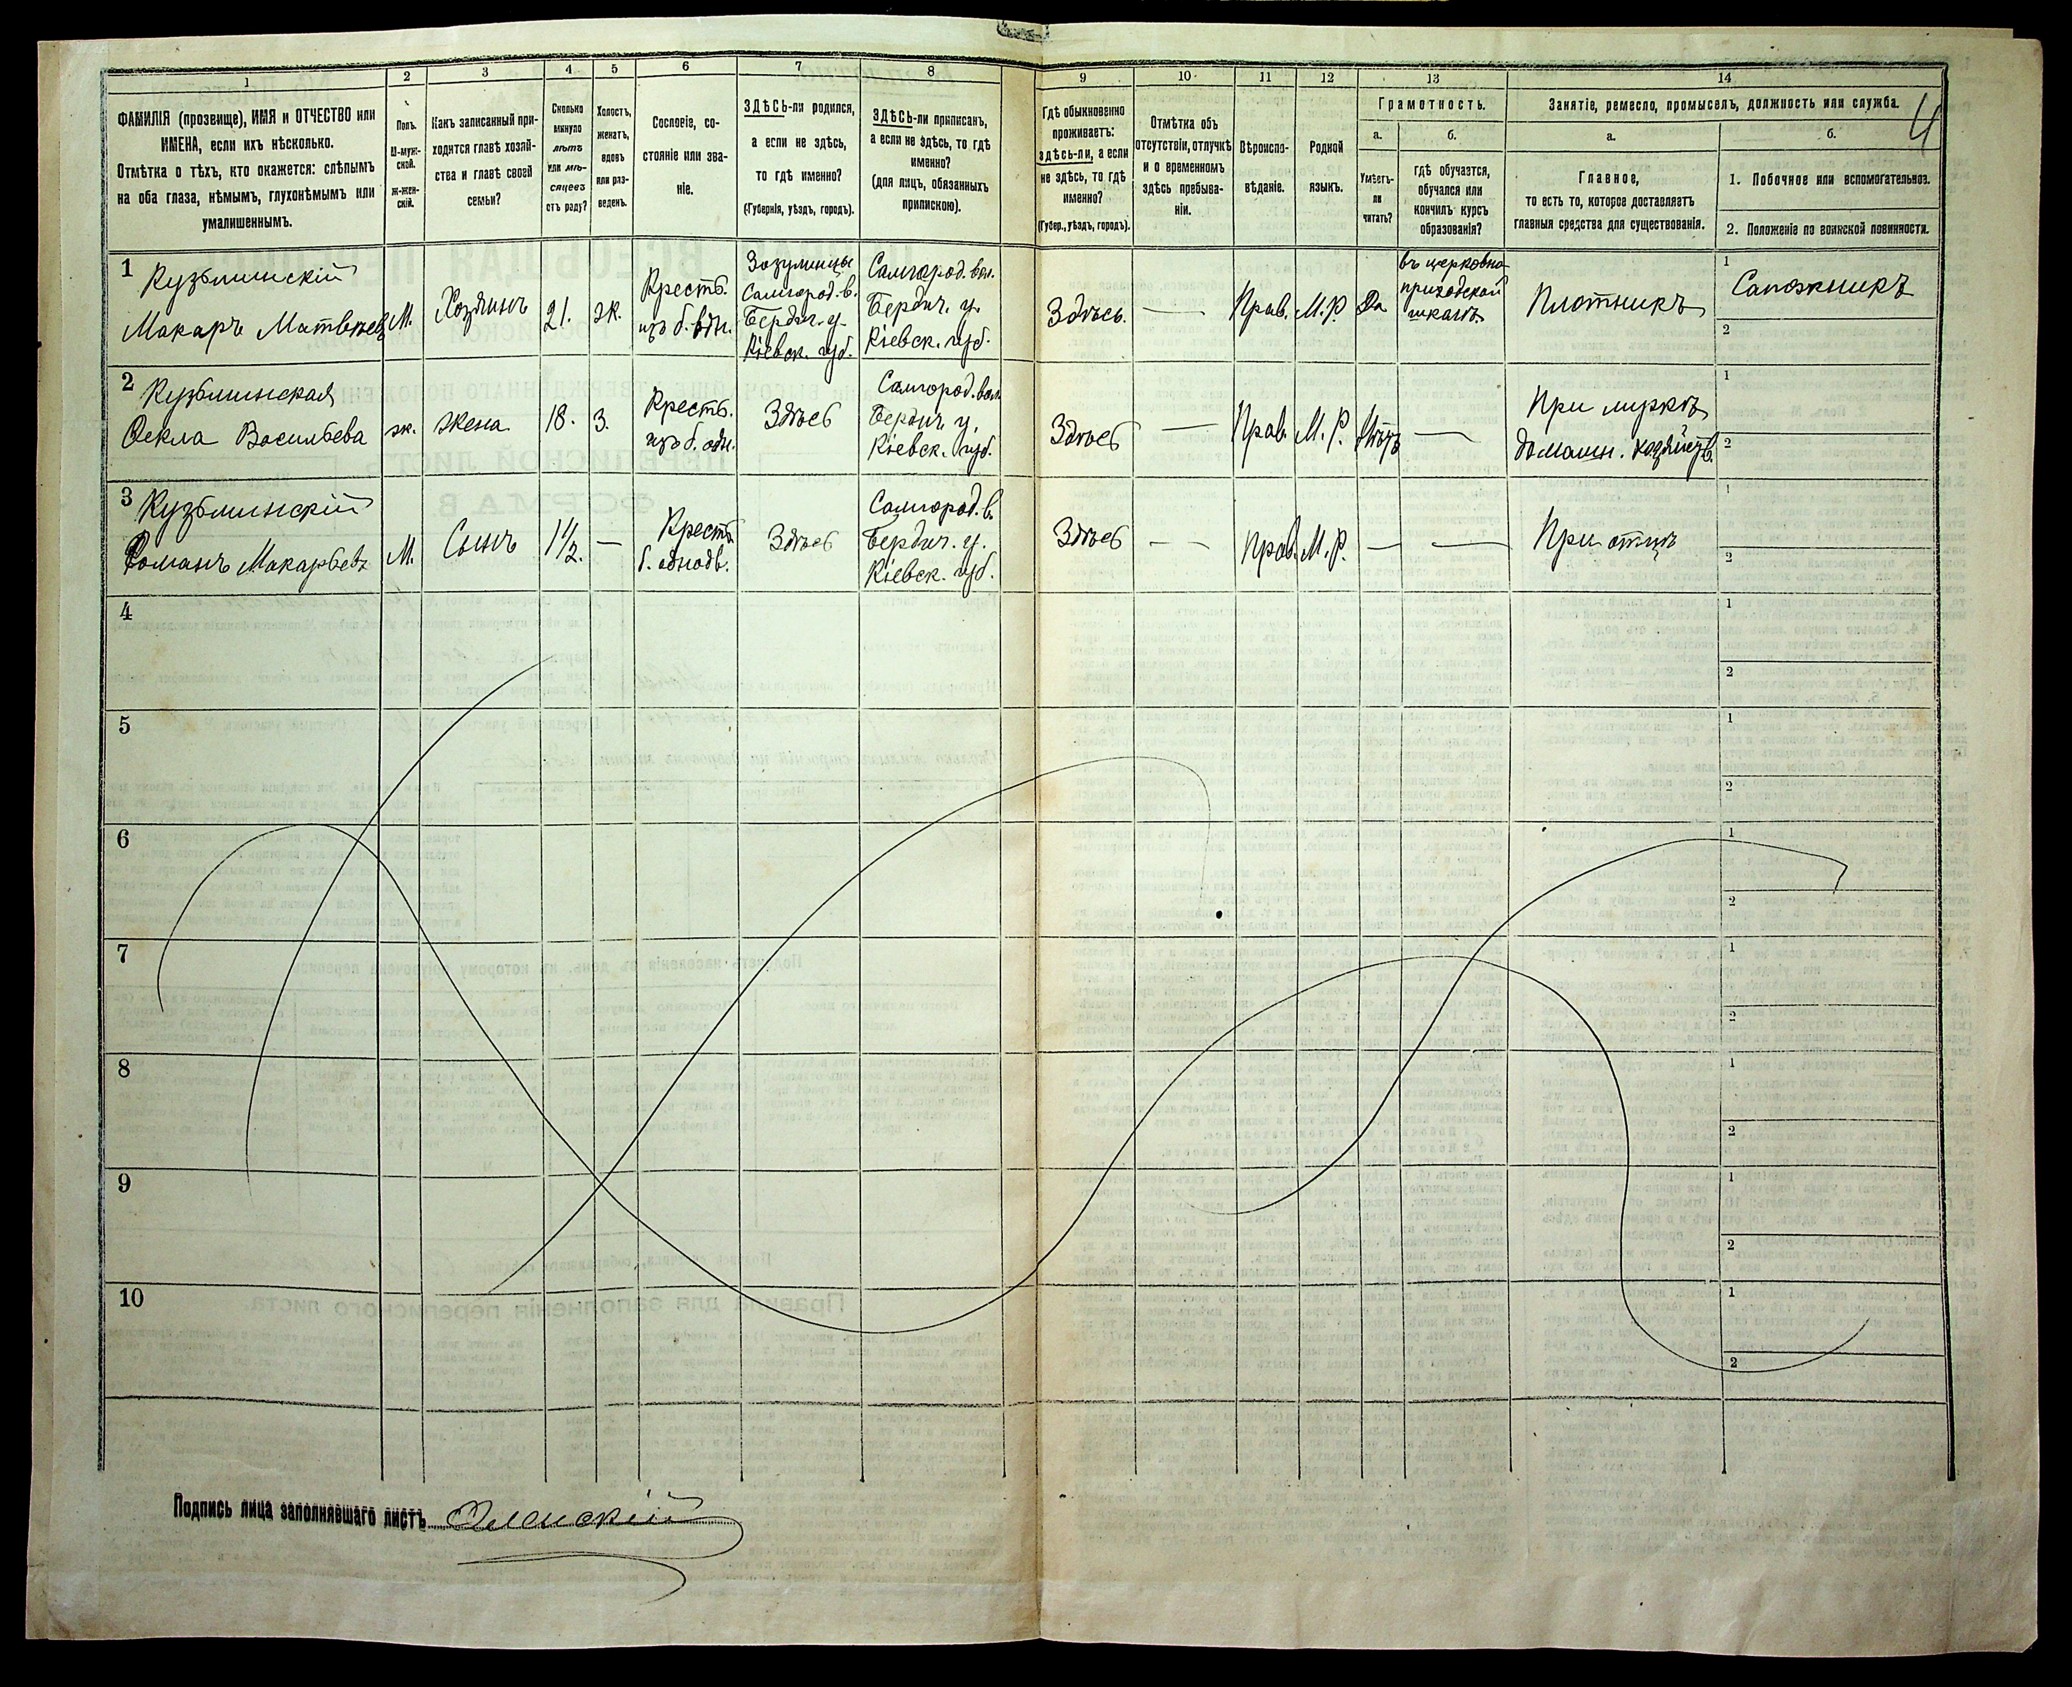 1 2 3 4 5 6 7 8 9 10 11 12 13 14
ФАМИЛІЯ (прозвище), ИМЯ и ОТЧЕСТВО или
ИМЕНА, если ихъ нѣсколько.
Отмѣтка о тѣхъ, кто окажется: слѣпымъ
на оба глаза, нѣмымъ, глухонѣмымъ или
умалишеннымъ.
Полъ.
М-муж-
ской.
ж-жен-
скій.
Какъ записанный при-
ходится главѣ хозяй-
ства и главѣ своей
семьи?
Сколько
минуло
лѣтъ
или мѣ-
сяцевъ
отъ роду?
Холостъ,
женатъ,
вдовъ
или раз-
веденъ.
Сословіе, со-
стояніе или зва-
ніе.
ЗДѢСЬ-ли родился,
а если не здѣсь,
то гдѣ именно?
(Губернія, уѣздъ, городъ).
ЗДѢСЬ-ли приписанъ,
а если не здѣсь, то гдѣ
именно?
(для лицъ, обязанныхъ
припискою).
Гдѣ обыкновенно
проживаетъ:
здѣсь-ли, а если
не здѣсь, то гдѣ
именно?
(Губер., уѣздъ, городъ).
Отмѣтка объ
отсутствіи, отлучкѣ
и о временномъ
здѣсь пребыва-
ніи.
Вѣроиспо-
вѣданіе.
Родной
языкъ.
Грамотность.
а.
Умѣетъ-
ли
читать?
б.
гдѣ обучается,
обучался или
кончилъ курсъ
образованія?
Занятіе, ремесло, промыселъ, должность или служба.
4
а.
Главное,
то есть то, которое доставляетъ
главныя средства для существованія.
б.
1. Побочное или вспомогательное.
2. Положеніе по воинской повинности.
1
Кузьминскій
Макаръ Матвѣевъ
М.
Хозяинъ
21.
ж.
Крестъ.
изъ б. одн.
Зозулинцы
Самгород. в.
Бердич. у.
Кіевск. губ.
Самгород. вол.
Бердич. у.
Кіевск. губ.
Здѣсь.
—
Прав.
М. Р.
Да
въ церковно-
приходской
школѣ
Плотникъ
1
Сапожникъ
2
2
Кузьминская
Фекла Васильева
ж.
жена
18.
З.
Крестъ.
изъ б. одн.
Здѣсь
Самгород. вол.
Бердич. у.
Кіевск. губ.
Здѣсь
—
Прав.
М. Р.
Нѣтъ
—
При мужѣ
домашн. хозяйств.
1
2
3
Кузьминскій
Романъ Макарьевъ
М.
Сынъ
1 1/2.
—
Крестъ
б. однодв.
Здѣсь
Самгород. в.
Бердич. у.
Кіевск. губ.
Здѣсь
—
Прав.
М. Р.
—
—
При отцѣ
1
2
4
1
2
5
1
2
6
1
2
7
1
2
8
1
2
9
1
2
10
1
2
Подпись лица заполнявшаго листъ